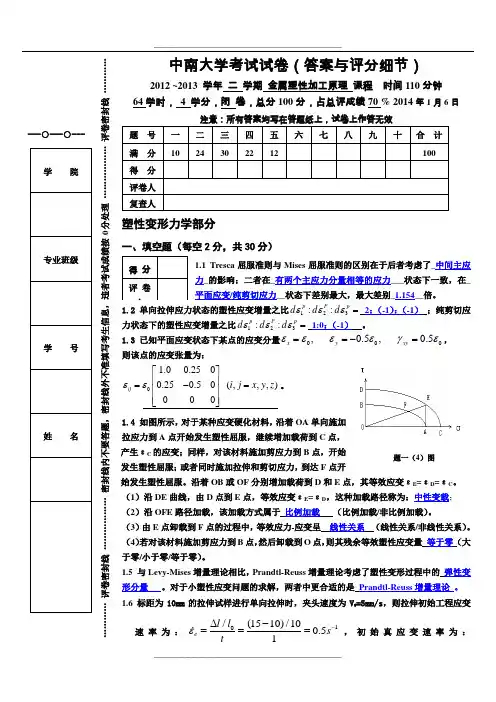 中南大学考试试卷（答案与评分细节）
2012 ~2013 学年 二 学期 金属塑性加工原理 课程 时间 110 分钟
64 学时， 4 学分，闭 卷，总分 100 分，占总评成绩 70 % 2014 年 1 月 6 日
注意：所有答案均写在答题纸上，试卷上作答无效
题 号 一 二 三 四 五 六 七 八 九 十 合 计
满 分 10 24 30 22 12 100
得 分
评卷人
复查人
学 院
专业班级
学 号
姓 名
评卷密封线 密封线内不要答题，密封线外不准填写考生信息，违者考试成绩按 0 分处理 评卷密封线
塑性变形力学部分
一、填空题（每空 2 分，共 30 分）
得 分
评 卷
1.1 Tresca 屈服准则与 Mises 屈服准则的区别在于后者考虑了 中间主应
力 的影响；二者在 有两个主应力分量相等的应力 状态下一致，在
平面应变/纯剪切应力 状态下差别最大，最大差别 1.154 倍。
1.2 单向拉伸应力状态的塑性应变增量之比 dε₁ᵖ : dε₂ᵖ : dε₃ᵖ = 2：(-1)：(-1) ；纯剪切应
力状态下的塑性应变增量之比 dε₁ᵖ : dε₂ᵖ : dε₃ᵖ = 1:0：(-1) 。
1.3 已知平面应变状态下某点的应变分量 εx = ε₀, εy = −0.5ε₀, γxy = 0.5ε₀，
则该点的应变张量为：
εij = ε₀ [1.0 0.25 0
0.25 −0.5 0
0 0 0] (i, j = x, y, z) 。
1.4 如图所示，对于某种应变硬化材料，沿着 OA 单向施加
拉应力到 A 点开始发生塑性屈服，继续增加载荷到 C 点，
产生 εC 的应变；同样，对该材料施加剪应力到 B 点，开始
发生塑性屈服；或者同时施加拉伸和剪切应力，到达 F 点开
始发生塑性屈服。沿着 OB 或 OF 分别增加载荷到 D 和 E 点，其等效应变 εE= εD= εC。
题一（4）图
（1）沿 DE 曲线，由 D 点到 E 点，等效应变 εE= εD，这种加载路径称为：中性变载；
（2）沿 OFE 路径加载，该加载方式属于 比例加载 （比例加载/非比例加载）。
（3）由 E 点卸载到 F 点的过程中，等效应力-应变呈 线性关系 （线性关系/非线性关系）。
（4）若对该材料施加剪应力到 B 点，然后卸载到 O 点，则其残余等效塑性应变量 等于零（大
于零/小于零/等于零）。
1.5 与 Levy-Mises 增量理论相比，Prandtl-Reuss 增量理论考虑了塑性变形过程中的 弹性变
形分量 。对于小塑性应变问题的求解，两者中更合适的是 Prandtl-Reuss 增量理论 。
1.6 标距为 10mm 的拉伸试样进行单向拉伸时，夹头速度为 V₀=5mm/s，则拉伸初始工程应变
速率为：ε̇e = (Δl / l₀)/t = ((15−10)/10)/1 = 0.5s⁻¹ ，初始真应变速率为：